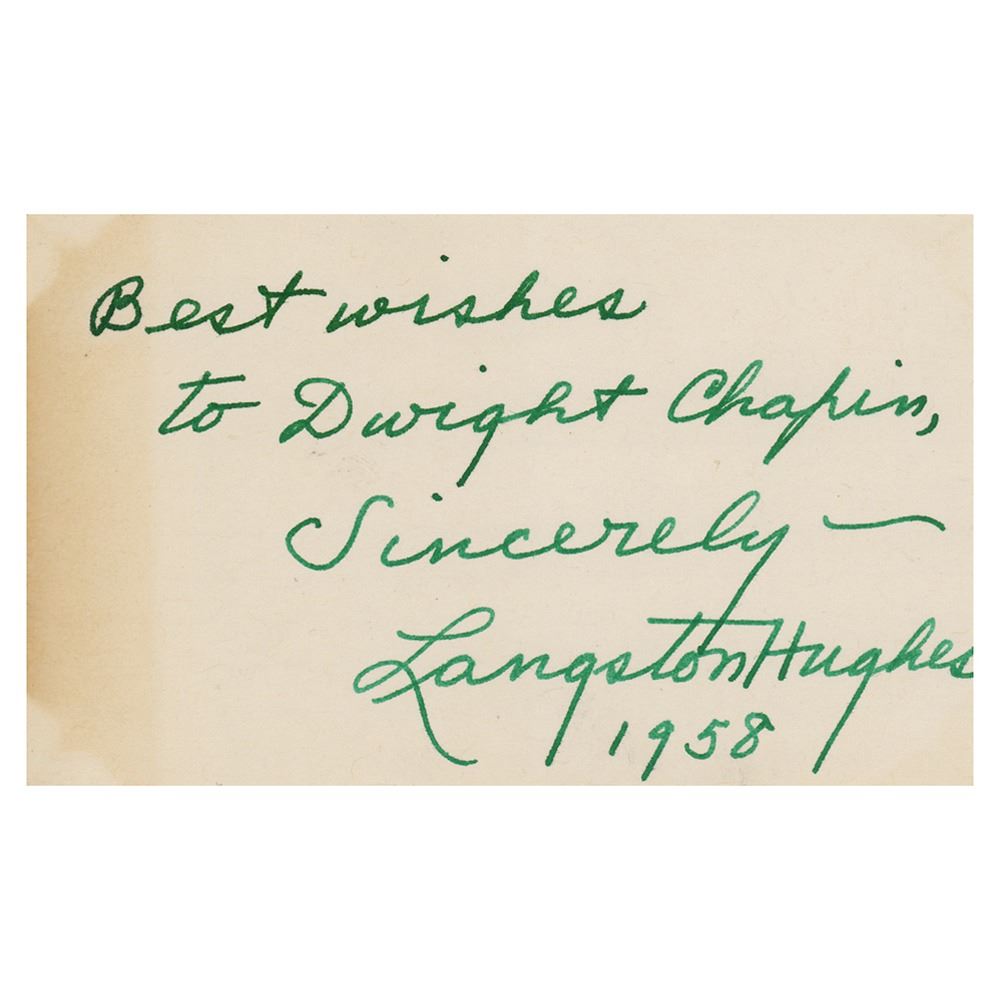 Best wishes
to Dwight Chapin,
Sincerely —
Langston Hughes
1958